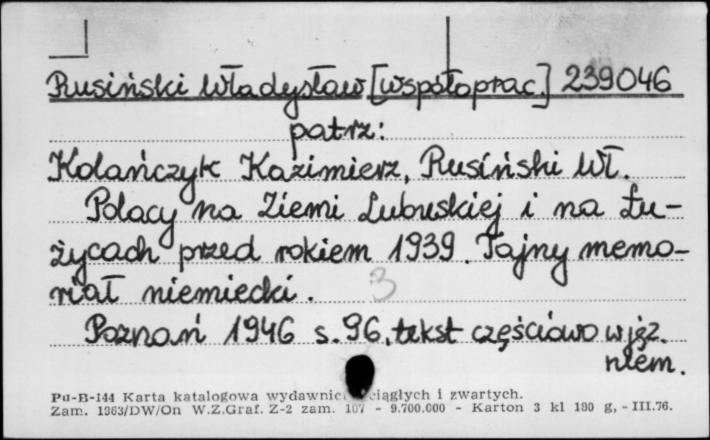 Rusiński Władysław [współoprac.] 239046
patrz:
Kolańczyk Kazimierz, Rusiński Wł.
Polacy na Ziemi Lubuskiej i na Łu-
życach przed rokiem 1939. Tajny memo-
riał niemiecki. 3
Poznań 1946 s. 96, tekst częściowo w jęz.
niem.
Pu-B-144 Karta katalogowa wydawnic ciągłych i zwartych.
Zam. 1363/DW/On W.Z.Graf. Z-2 zam. 107 - 9.700.000 - Karton 3 kl 180 g, - III.76.